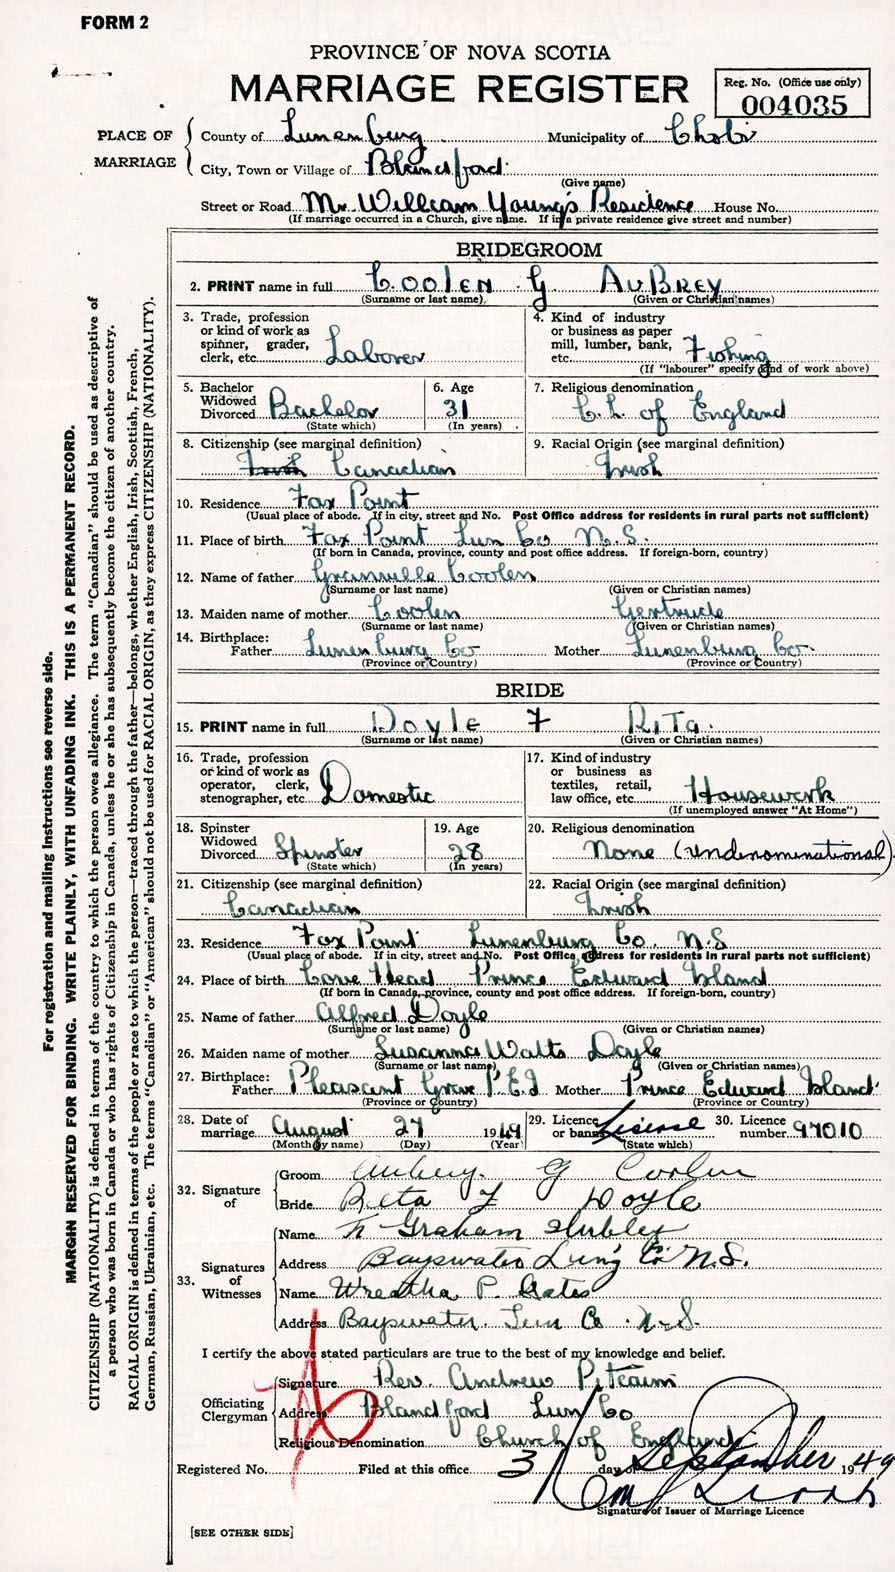 FORM 2
PROVINCE OF NOVA SCOTIA
MARRIAGE REGISTER
Reg. No. (Office use only)
004035
PLACE OF MARRIAGE
County of Lunenburg Municipality of
City, Town or Village of Blandford
(Give name)
Street or Road Mr William Young's Residence House No.
(If marriage occurred in a Church, give name. If in a private residence give street and number)
BRIDEGROOM
2. PRINT name in full COOLEN G AUBREY
(Surname or last name) (Given or Christian names)
3. Trade, profession or kind of work as spinner, grader, clerk, etc. Laborer
4. Kind of industry or business as paper mill, lumber, bank, etc. Fishing
(If "labourer" specify kind of work above)
5. Bachelor Widowed Divorced Bachelor
(State which)
6. Age 31
(In years)
7. Religious denomination
Ch. of England
8. Citizenship (see marginal definition)
Irish Canadian
9. Racial Origin (see marginal definition)
Irish
10. Residence Fox Point
(Usual place of abode. If in city, street and No. Post Office address for residents in rural parts not sufficient)
11. Place of birth Fox Point Lun Co N.S.
(If born in Canada, province, county and post office address. If foreign-born, country)
12. Name of father Granville Coolen
(Surname or last name) (Given or Christian names)
13. Maiden name of mother Coolen Gertrude
(Surname or last name) (Given or Christian names)
14. Birthplace:
Father Lunenburg Co Mother Lunenburg Co.
(Province or Country) (Province or Country)
BRIDE
15. PRINT name in full Doyle F RITa.
(Surname or last name) (Given or Christian names)
16. Trade, profession or kind of work as operator, clerk, stenographer, etc. Domestic
17. Kind of industry or business as textiles, retail, law office, etc. Housework
(If unemployed answer "At Home")
18. Spinster Widowed Divorced Spinster
(State which)
19. Age 28
(In years)
20. Religious denomination
None (undenominational)
21. Citizenship (see marginal definition)
Canadian
22. Racial Origin (see marginal definition)
Irish
23. Residence Fox Point Lunenburg Co. N.S
(Usual place of abode. If in city, street and No. Post Office address for residents in rural parts not sufficient)
24. Place of birth Cove Head Prince Edward Island
(If born in Canada, province, county and post office address. If foreign-born, country)
25. Name of father Alfred Doyle
(Surname or last name) (Given or Christian names)
26. Maiden name of mother Susanna Watts Doyle
(Surname or last name) (Given or Christian names)
27. Birthplace:
Father Pleasant Grove P.E.I Mother Prince Edward Island
(Province or Country) (Province or Country)
28. Date of marriage August 27 1949
(Month by name) (Day) (Year)
29. Licence or banns License
(State which)
30. Licence number 97010
32. Signature of
Groom Aubrey. G Coolen
Bride Rita F Doyle
33. Signatures of Witnesses
Name Graham Hubley
Address Bayswater Lun'g Co N.S.
Name Wreatha P. Gates
Address Bayswater. Lun Co. N.S.
I certify the above stated particulars are true to the best of my knowledge and belief.
Officiating Clergyman
Signature Rev. Andrew Pitcairn
Address Blandford Lun Co
Religious Denomination Church of England
Registered No. Filed at this office 3 day of September 1949
Signature of Issuer of Marriage Licence
[SEE OTHER SIDE]
For registration and mailing instructions see reverse side.
MARGIN RESERVED FOR BINDING. WRITE PLAINLY, WITH UNFADING INK. THIS IS A PERMANENT RECORD.
CITIZENSHIP (NATIONALITY) is defined in terms of the country to which the person owes allegiance. The term "Canadian" should be used as descriptive of
a person who was born in Canada or who has rights of Citizenship in Canada, unless he or she has subsequently become the citizen of another country.
RACIAL ORIGIN is defined in terms of the people or race to which the person—traced through the father—belongs, whether English, Irish, Scottish, French,
German, Russian, Ukrainian, etc. The terms "Canadian" or "American" should not be used for RACIAL ORIGIN, as they express CITIZENSHIP (NATIONALITY).